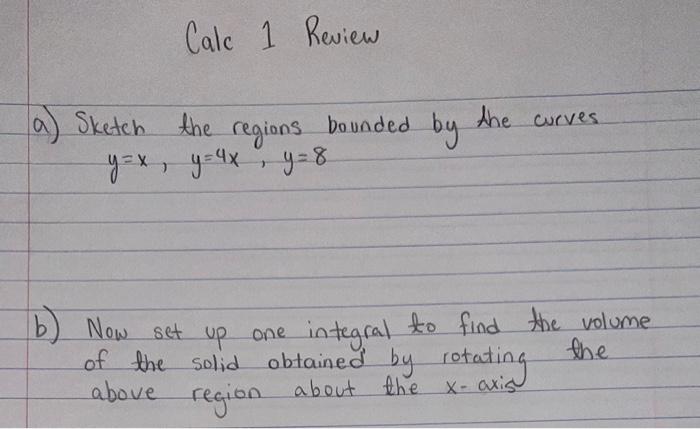 Calc 1 Review
a) Sketch the regions bounded by the curves
y=x, y=4x, y=8
b) Now set up one integral to find the volume
of the solid obtained by rotating the
above region about the x-axis